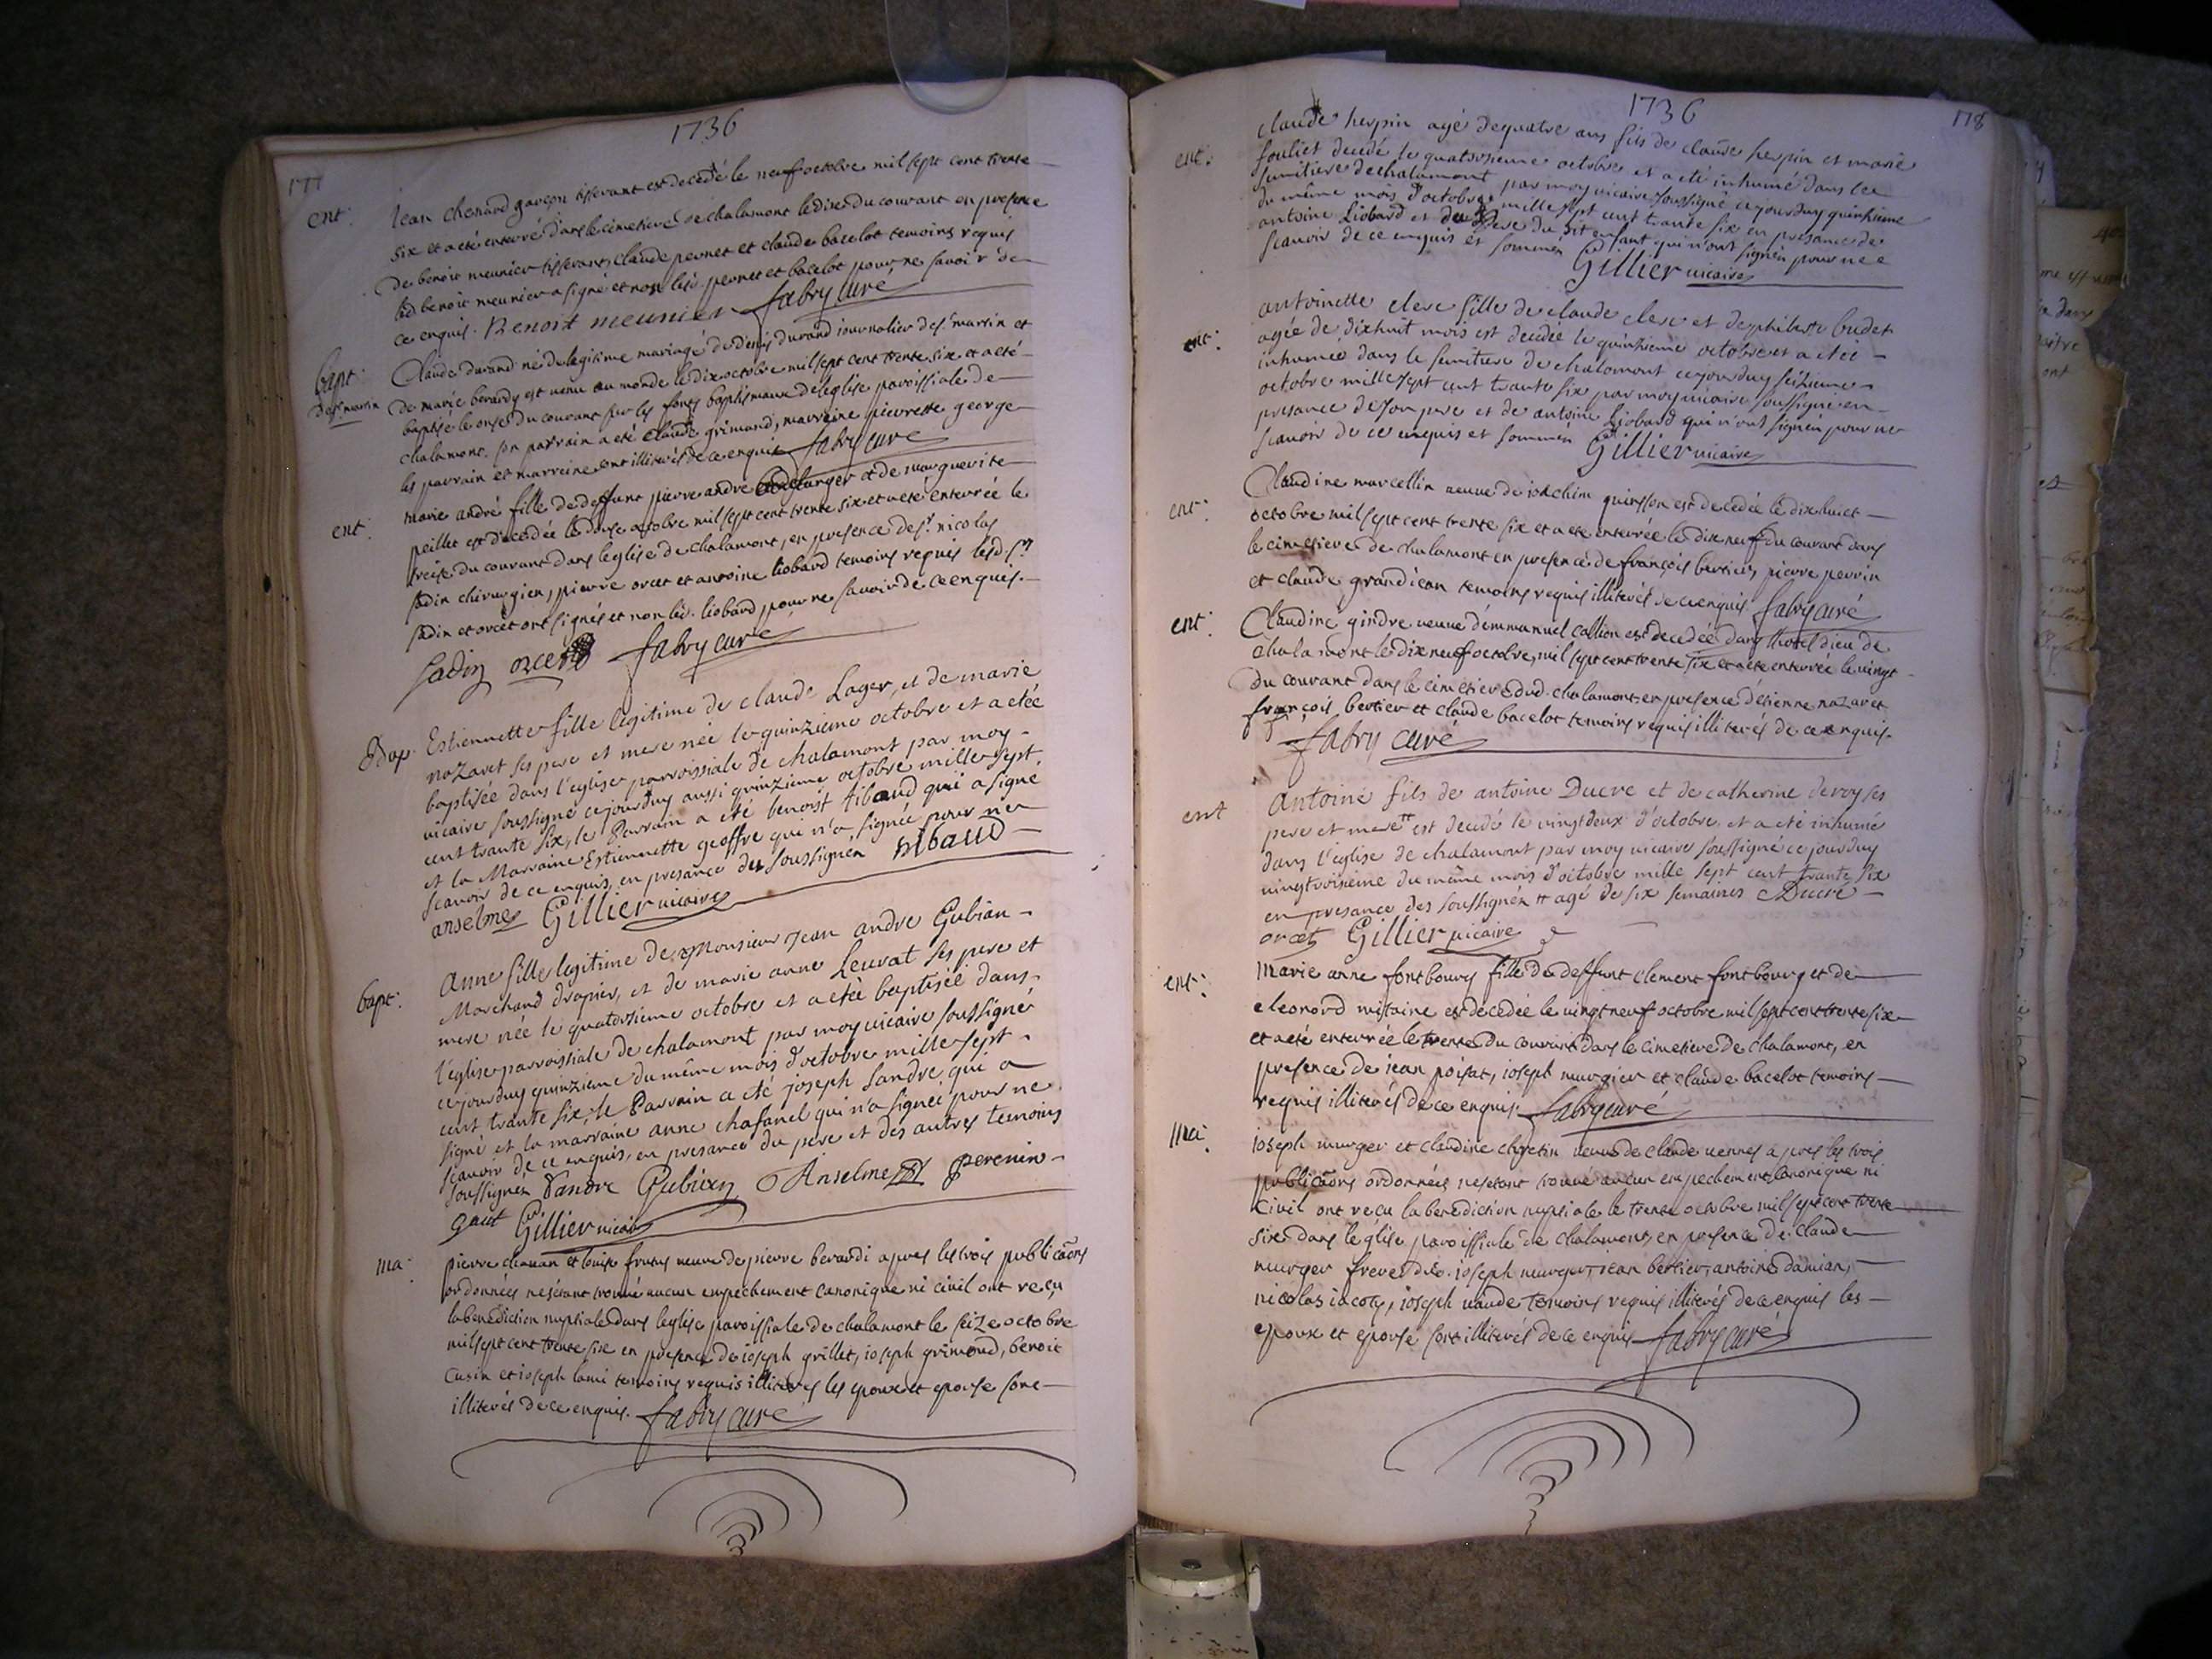 1736
177
ent: Jean chenard garçon tisserant est decedé le neuf octobre mil sept cent trente
six et a eté enterré dans le cimetiere de chalamont le dix du courant en presence
de benoit meunier tisserant, claude peronet et claude bacelot temoins requis
led. benoit meunier a signé et non lesd. peronet et bacelot pour ne savoir de
ce enquis. Benoit meunier fabry curé
bapt: Claude durand né de legitime mariage de denis durand iournalier de st. martin et
de st martin de marie berardy est venu au monde le dix octobre mil sept cent trente six et a eté
baptisé le onze du courant sur les fonts baptismaux de leglise paroissiale de
chalamont. son parrain a eté claude grimand, marreine pierrette george
les parrain et marreine sont illiterés de ce enquis fabry curé
ent: marie andré fille de deffunt pierre andré boulanger et de marguerite
peillet est decedée le douze octobre mil sept cent trente six et a eté enterrée le
treize du courant dans leglise de chalamont, en presence de sr. nicolas
sadin chirurgien, pierre orcet et antoine liobard temoins requis lesd. srs
sadin et orcet ont signés et non led. liobard pour ne savoir de ce enquis.
sadin orcet fabry curé
Bap Estiennette fille legitime de claude Lager, et de marie
nazaret ses pere et mere née le quinzieme octobre et a etée
baptisée dans l'eglise parroissiale de chalamont par moy
vicaire soussigné cejourduy aussi quinzieme octobre mille sept
cent trante six, le Parrain a eté benoist tibaud qui a signé
et la Marraine Estiennette geoffre qui n'a signée pour ne
scavoir de ce enquis, en presance des soussignés tibaud
anselme Gillier vicaire
bapt: Anne fille legitime de Monsieur Jean andré Gubian
Marchand drapier, et de marie anne Leurat ses pere et
mere née le quatorsieme octobre et a etée baptisée dans
l'eglise parroissiale de chalamont par moy vicaire soussigné
cejourduy quinzieme du même mois d'octobre mille sept
cent trante six, le Parrain a eté joseph Sandre qui a
signé et la marraine anne chafanel qui n'a signée pour ne
scavoir de ce enquis, en presance du pere et des autres temoins
soussignés Sandre Gubian Anselme perenin
Gillier vicaire
ma: pierre chanan et louise frutus veuve de pierre berardi apres les trois publicaons
ordonnées nesétant trouvé aucun empechement canonique ni civil ont recu
la benediction nuptiale dans leglise paroissiale de chalamont le seize octobre
mil sept cent trente six en presence de ioseph grillet, ioseph grimond, benoit
cusin et ioseph lami temoins requis illiterés les epoux et epouse sont
illiterés de ce enquis. fabry curé
1736
178
ent: Claude herpin agé de quatre ans fils de claude herpin et marie
souliet decedé le quatorsieme octobre et a eté inhumé dans le
simitiere de chalamont par moy vicaire soussigné cejourduy quinzieme
du même mois d'octobre mille sept cent trante six en presance de
antoine Liobard et du pere du dit enfant qui n'ont signés pour ne
scavoir de ce enquis et sommés Gillier vicaire
ent: antoinette clerc fille de claude clerc et de philiberte budet
agée de dixhuit mois est decedée le quinzieme octobre et a etée
inhumée dans le simitiere de chalamont cejourduy seizieme
octobre mille sept cent trante six par moy vicaire soussigné en
presance de son pere et de antoine Liobard qui n'ont signés pour ne
scavoir de ce enquis et sommés Gillier vicaire
ent: Claudine marcellin veuve de ioachim quinsson est decedée le dix huict
octobre mil sept cent trente six et a eté enterrée le dix neuf du courant dans
le cimetiere de chalamont en presence de françois bertier, pierre perrin
et claude grandiean temoins requis illiterés de ce enquis fabry curé
ent: Claudine gindre veuve démmanuel callion est decedée dans lhotel dieu de
chalamont le dix neuf octobre, mil sept cent trente six et a eté enterrée le vingt
du courant dans le cimetiere dud. chalamont en presence détienne nazaret
françois bertier et claude bacelot temoins requis illiterés de ce enquis.
fabry curé
ent Antoine fils de antoine Ducre et de catherine deroy ses
pere et mere tt est decedé le vingtdeux d'octobre et a eté inhumé
dans l'eglise de chalamont par moy vicaire soussigné cejourduy
vingttroisieme du même mois d'octobre mille sept cent trante six
en presance des soussignés tt agé de six semaines Ducré
orcet Gillier vicaire
ent: Marie anne fontbourg fille de deffunt clement fontbourg et de
eleonord mistaine est decedée le vingt neuf octobre mil sept cent trente six
et a eté enterrée le trente du courant dans le cimetiere de chalamont, en
presence de iean poisat, ioseph murgier et claude bacelot temoins
requis illiterés de ce enquis. fabry curé
ma: ioseph murger et claudine chretin veuve de claude vennes apres les trois
publicaons ordonnées nesetant trouvé aucun empechement canonique ni
civil ont recu la benediction nuptiale le trente octobre mil sept cent trente
six dans leglise paroissiale de chalamont, en presence de claude
murger frere dud. ioseph murger, iean bertier, antoine damian,
nicolas iacoty, ioseph vaude temoins requis illiterés de ce enquis les
epoux et epouse sont illiterés de ce enquis fabry curé